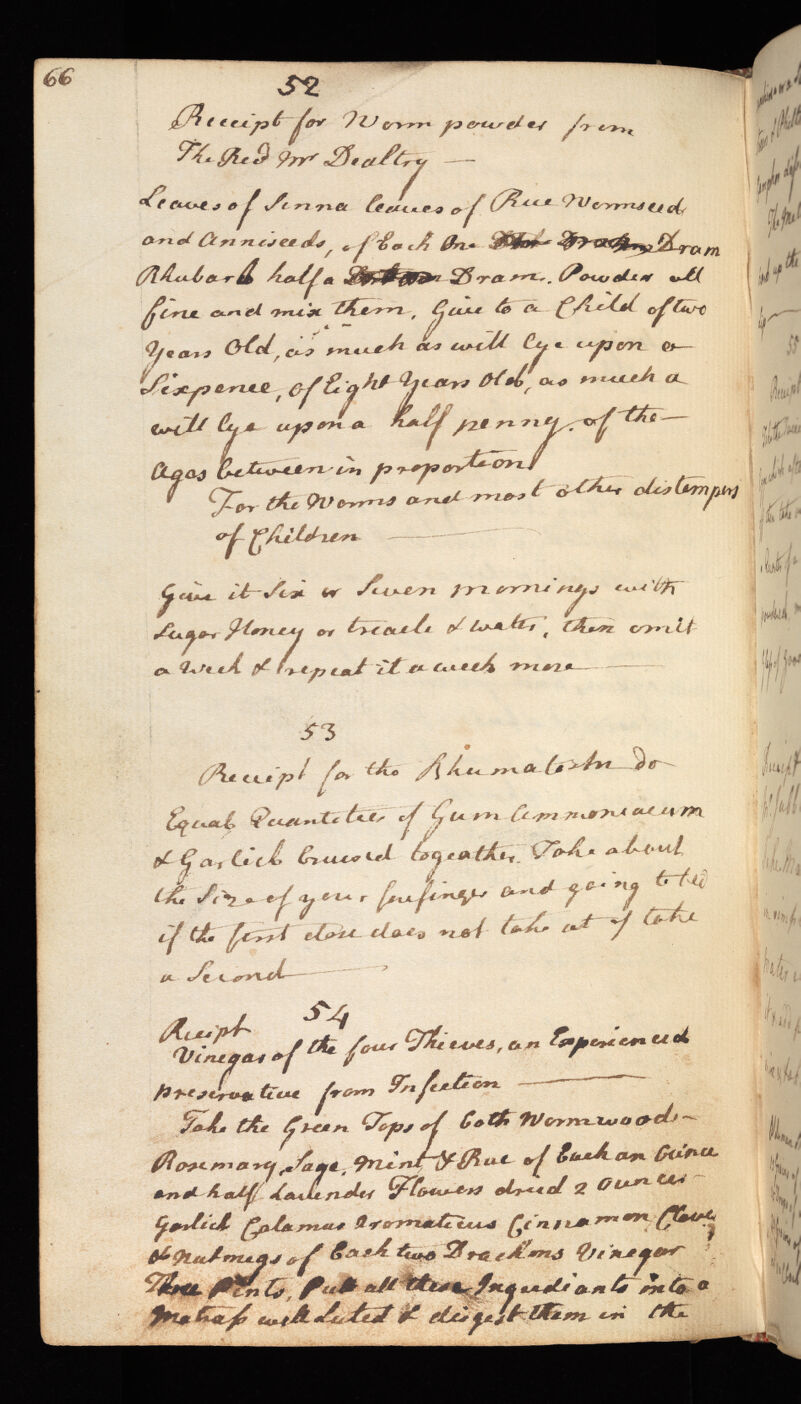 66
52
Receipt for Worm powder from
The Revd Mr Dealtry —
Leaves of Senna leaves of Rue Wormseed
and Anniseeds, of Each One Dram
Rhubarb half a Dram. Powder all
fine and mix them, Give to a Child of two
Years Old, as much as will lye upon a
Sixpence, of Eight Years Old, as much a
will lye upon a half penny. of the —
Ages between in proportion
For the Worms and most other distempers
of Children —
Give it Six or Seven mornings with
Sugar Honey or treacle & water, then omit
a Week & repeat it a week more —
53
Receipt for the Rhumatosm do
Equal Quantities of Gum Ammoniacum
& Garlick bruised togeather. Take about
the Size of your forefinger and going to bed
if the first dose does not take it of take
a Second —
54
Reciept
Vinegar of the four Thieves, an Experienced
preservative from Infection —
Take the Green Tops of both Wormwoods –
Rosemary, Sage, Mint, & Rue of Each an Ounce
and half Lavender Flowers dried 2 Ounces –
Garlick Calamus Aromaticus Cinnamon Cloves
& Nutmegs of Each two Drachms Vinegar
Three Pints, Put all these Ingrediants into a
Matrass well Luted & disgest them in the